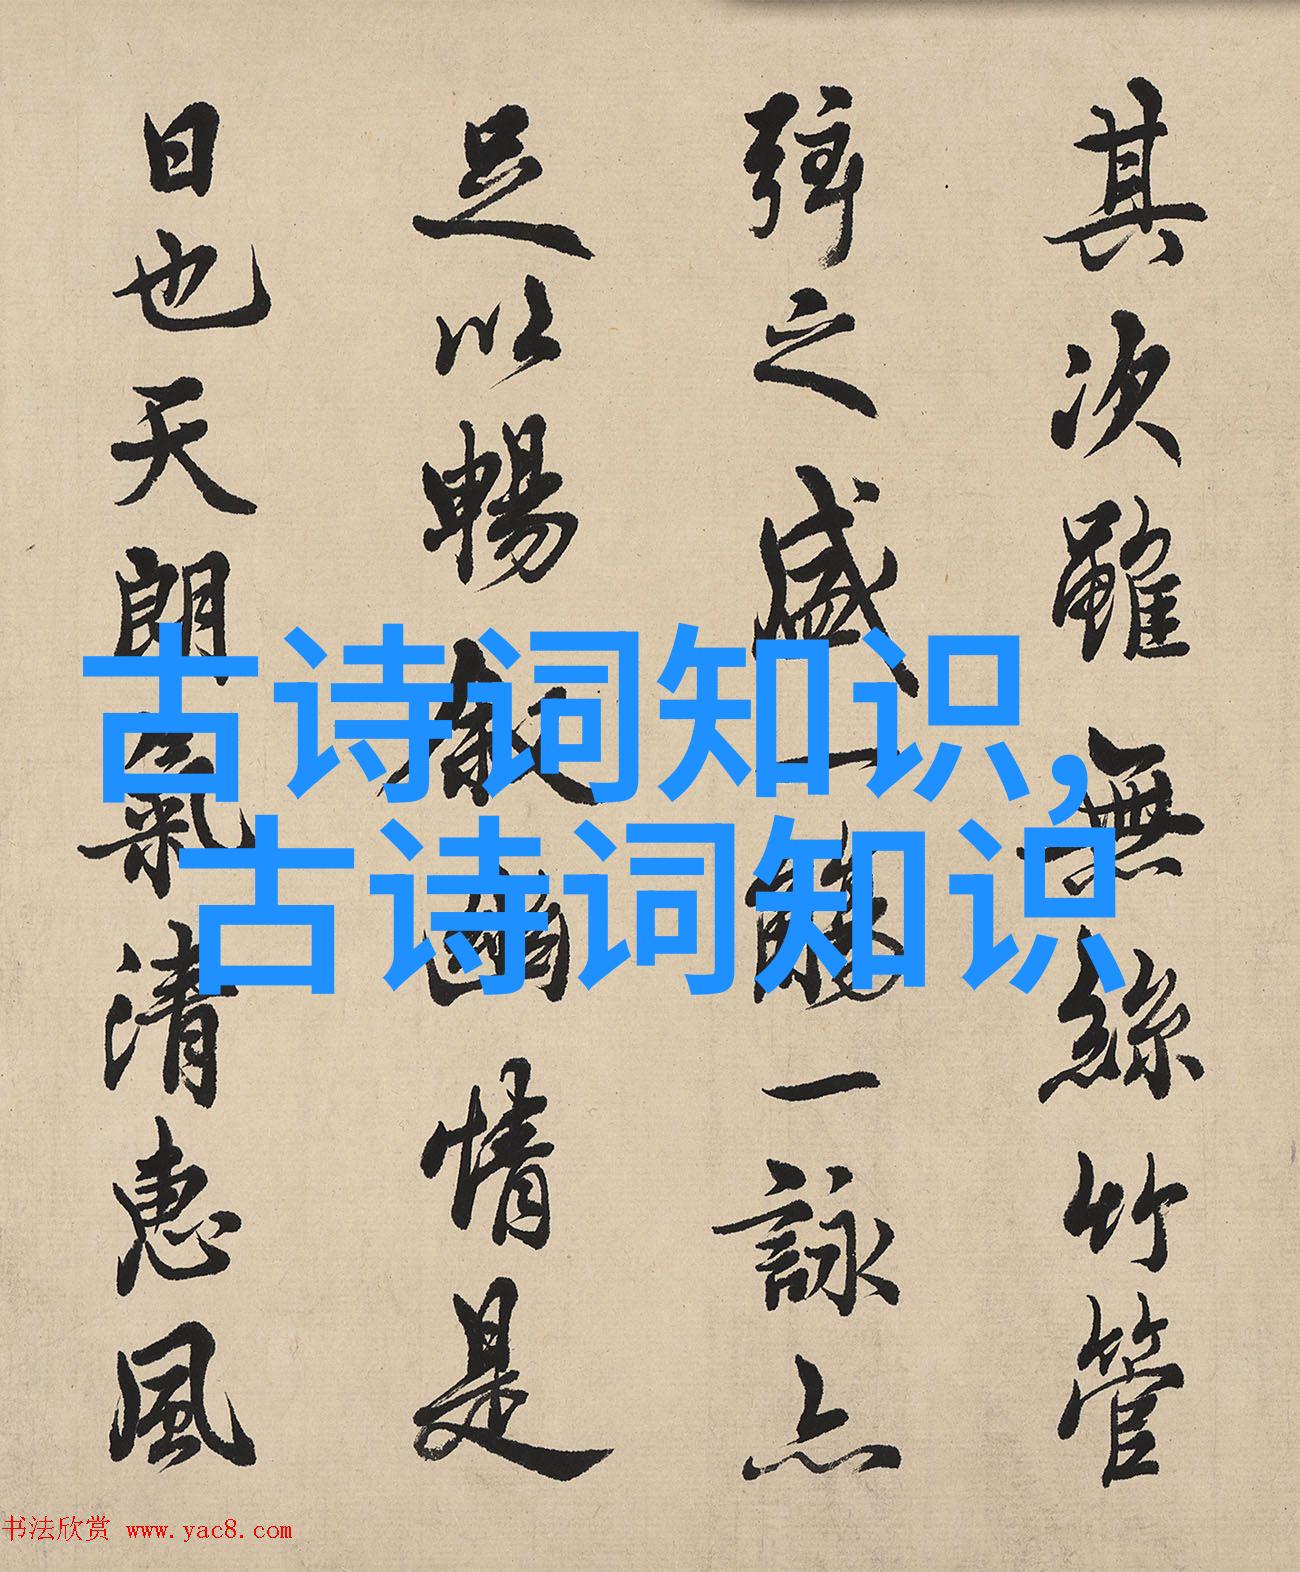 其次雖無絲竹管
弦之盛一觴一詠亦
足以暢敘幽情是
日也天朗氣清惠風
古诗词知识,
古诗词知识
书法欣赏 www.yac8.com